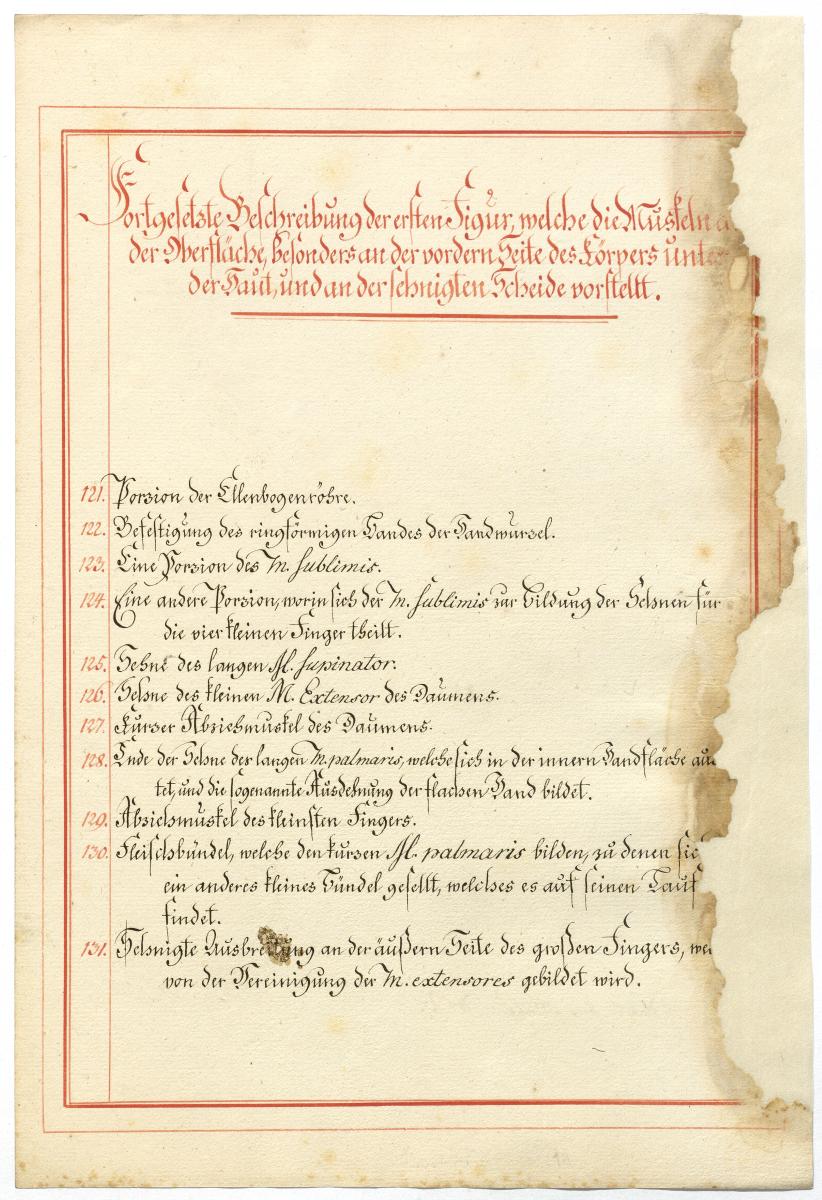 Fortgesetzte Beschreibung der ersten Figur, welche die Muskeln
der Oberfläche, besonders an der vordern Seite des Körpers unter
der Haut, und an der sehnigten Scheide vorstellt.
121. Porzion der Ellenbogenröhre.
122. Befestigung des ringförmigen Bandes der Handwurzel.
123. Eine Porzion des M. sublimis.
124. Eine andere Porzion, worin sich der M. sublimis zur Bildung der Sehnen für
die vier kleinen Finger theilt.
125. Sehne des langen M. supinator.
126. Sehne des kleinen M. Extensor des Daumens.
127. Kurzer Abziehmuskel des Daumens.
128. Ende der Sehne des langen M. palmaris, welche sich in der innern Handfläche
tet, und die sogenannte Ausdehnung der flachen Hand bildet.
129. Abziehmuskel des kleinsten Fingers.
130. Fleischbündel, welche den kurzen M. palmaris bilden, zu denen
ein anderes kleines Bündel gesellt, welches es auf seinen Lauf
findet.
131. Sehnigte Ausbreitung an der äußern Seite des großen Fingers,
von der Vereinigung der M. extensores gebildet wird.